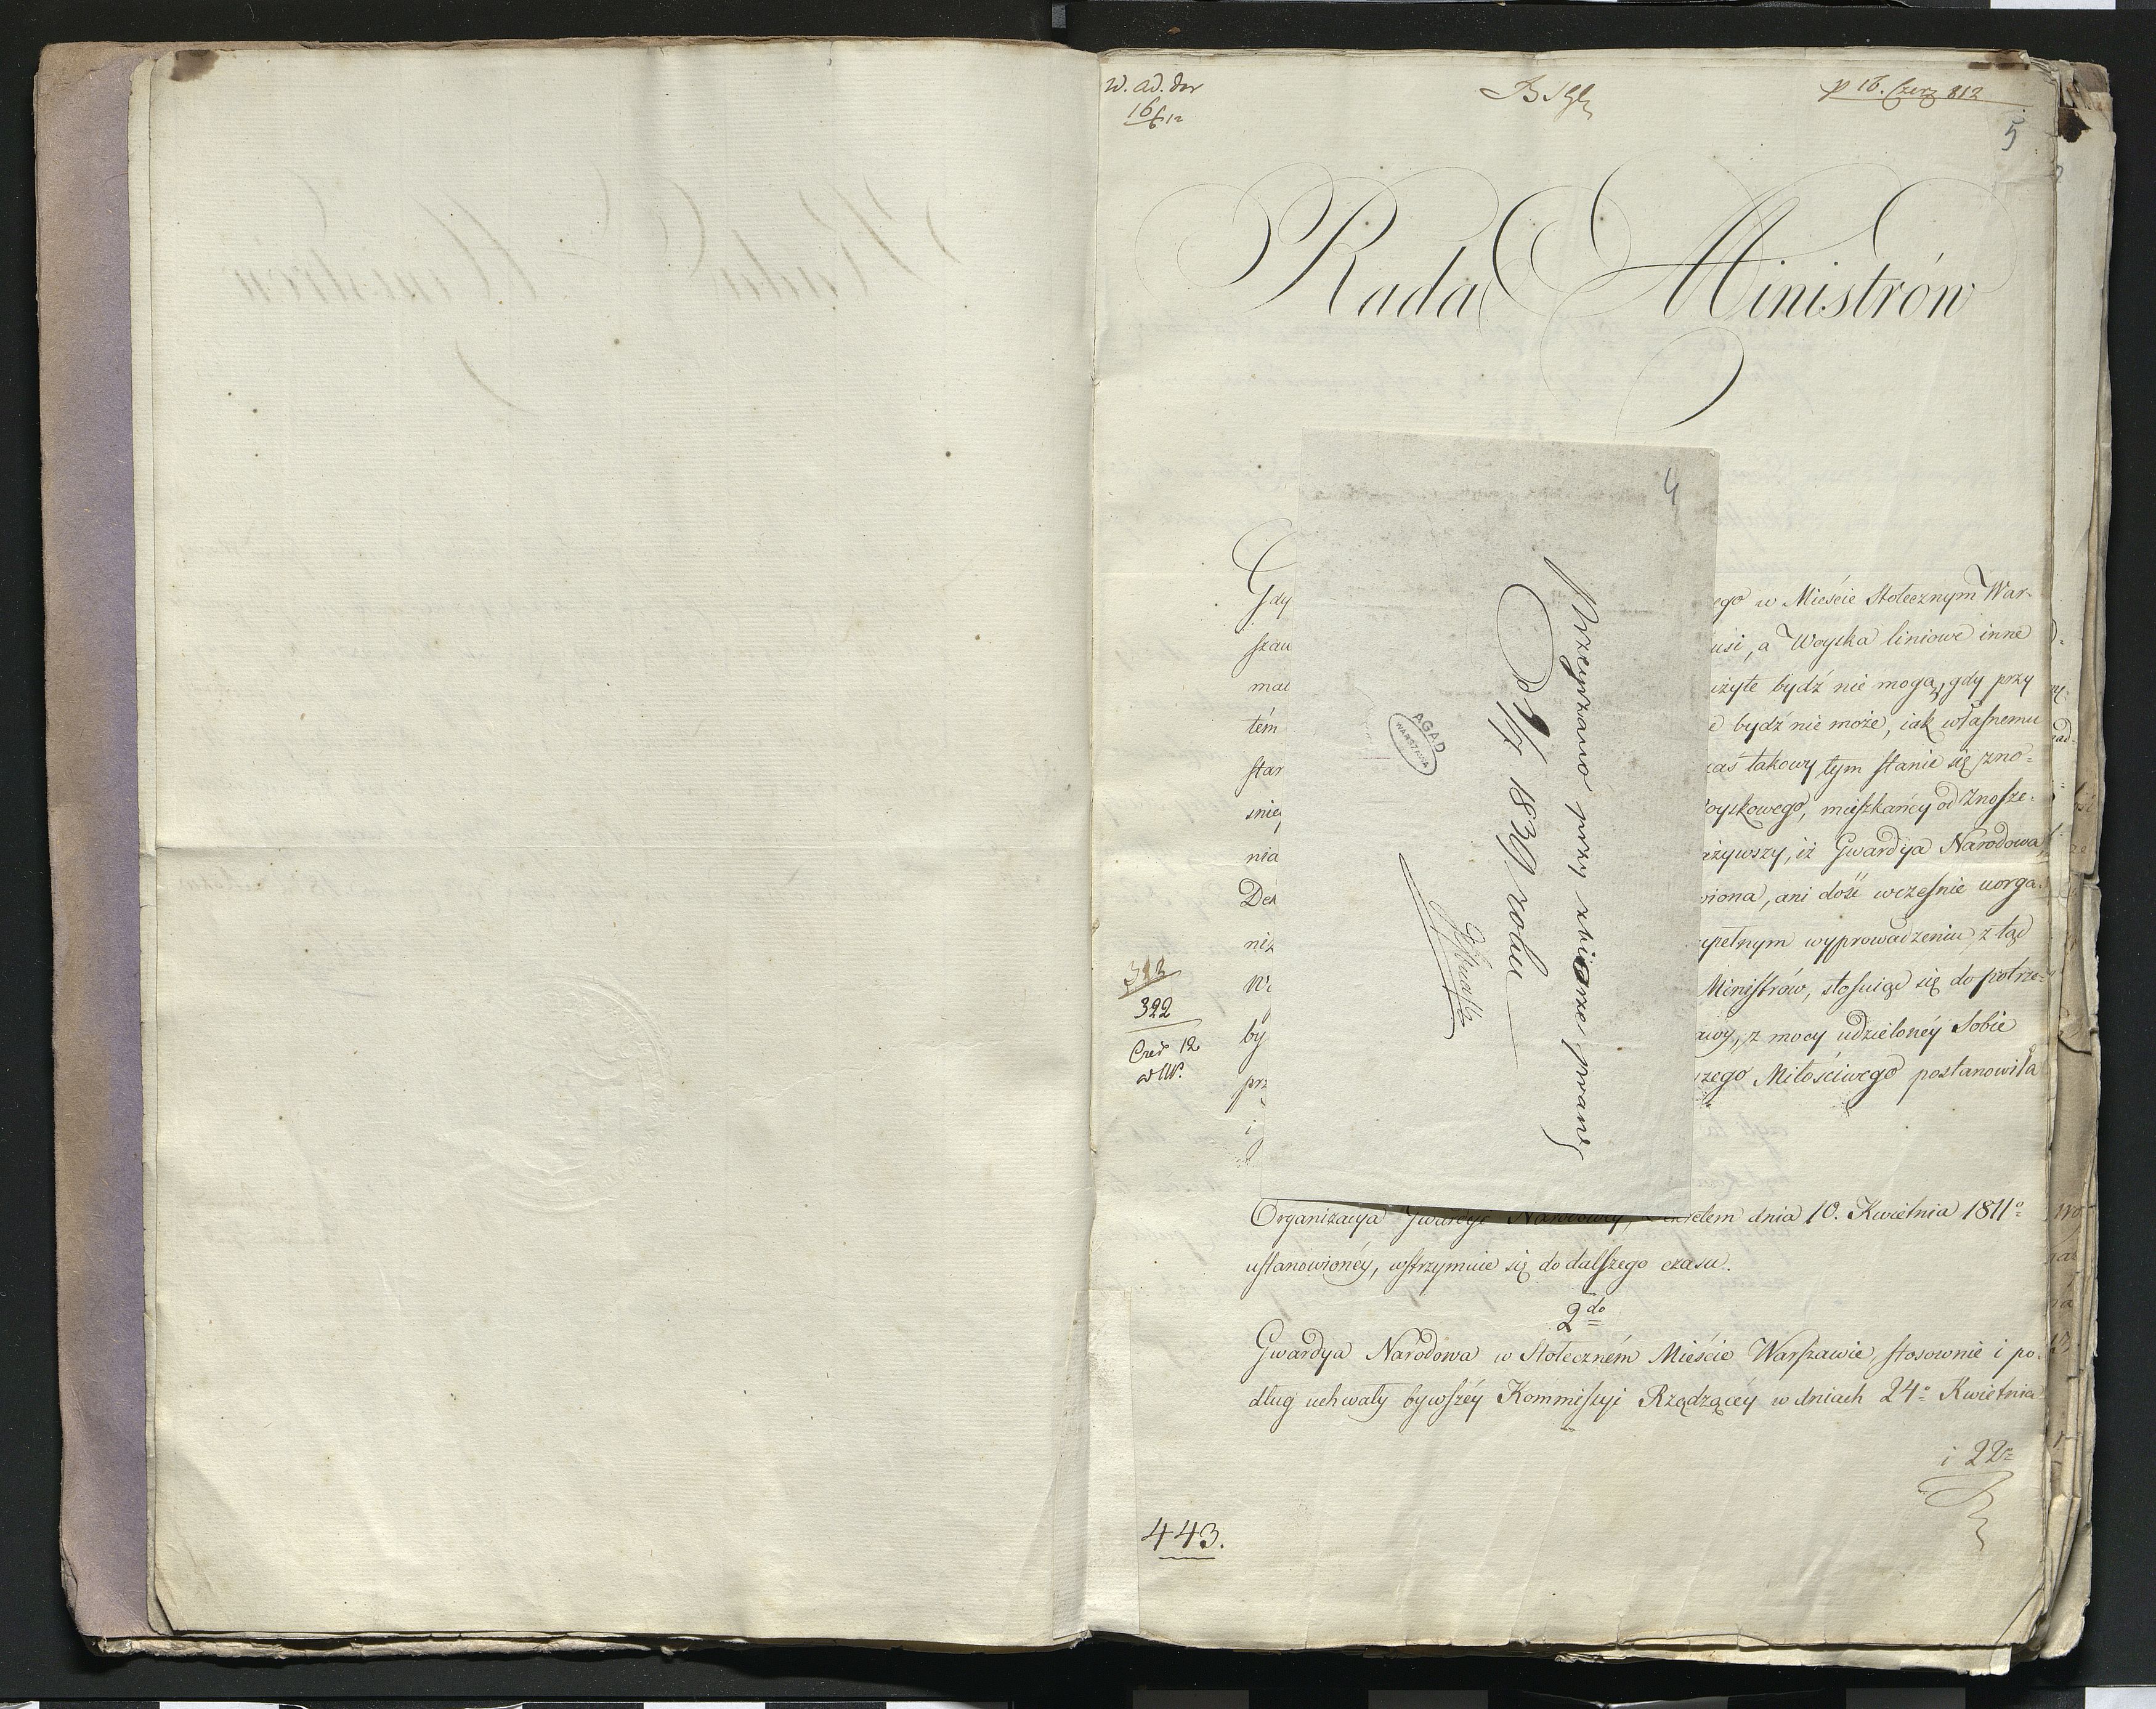 w. ad. der
16/6 12
p 16. Czerz 812
5
Rada Ministrów
4
Przeyrzano przy zbiorze praw
D 9/7 1830 roku
AGAD
WARSZAWA
Gdy
ego w Mieście Stołecznym War-
szaw
usi, a Woyska liniowe inne
maią
użyte bydź nie mogą, gdy przy
tém
e bydź nie może, iak własnemu
star
zas takowy tym stanie się zno-
śniey
oyskowego, mieszkańcy od znosze-
nia
ażywszy, iż Gwardya Narodowa
Dek
wiona, ani dość wcześnie uorga-
niz
upełnym wyprowadzeniu z tąd
Wo
Ministrów, stosuiąc się do potrze-
by
awy, z mocy udzielonéy Sobie
prz
szego Miłościwego postanowiła
i
323
322
Czer 12
Organizacya Gwardyi Narodowéy, Dekretem dnia 10. Kwietnia 1811º
ustanowionéy, wstrzymuie się do dalszego czasu.
2do
Gwardya Narodowa w Stołeczném Mieście Warszawie, stosownie i po-
dług uchwały bywszéy Kommissyi Rządzącéy w dniach 24º Kwietnia
i 22º
443.